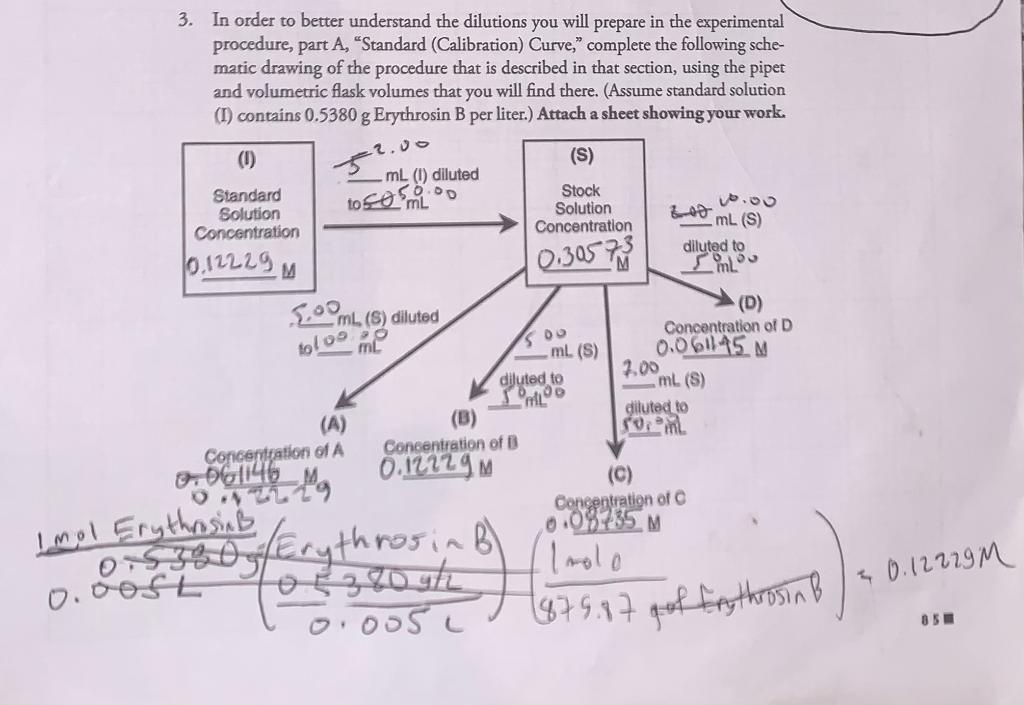 3. In order to better understand the dilutions you will prepare in the experimental
procedure, part A, “Standard (Calibration) Curve,” complete the following sche-
matic drawing of the procedure that is described in that section, using the pipet
and volumetric flask volumes that you will find there. (Assume standard solution
(I) contains 0.5380 g Erythrosin B per liter.) Attach a sheet showing your work.
(I)
Standard
Solution
Concentration
0.12229 M
5 2.00
mL (I) diluted
to 50 50.00 mL
(S)
Stock
Solution
Concentration
0.30573 M
10.00
mL (S)
diluted to
50.00 mL
(D)
Concentration of D
0.061145 M
5.00 mL (S) diluted
to 100.00 mL
(A)
Concentration of A
0.061146 M
0.12229
5.00
mL (S)
diluted to
50.00 mL
(B)
Concentration of B
0.12229 M
2.00
mL (S)
diluted to
50.00 mL
(C)
Concentration of C
0.08735 M
1 mol Erythrosin B
0.5380 g
0.005L
(Erythrosin B)
0.5380 g/L
0.005 L
1 mol
879.87 g of Erythrosin B
= 0.12229M
85